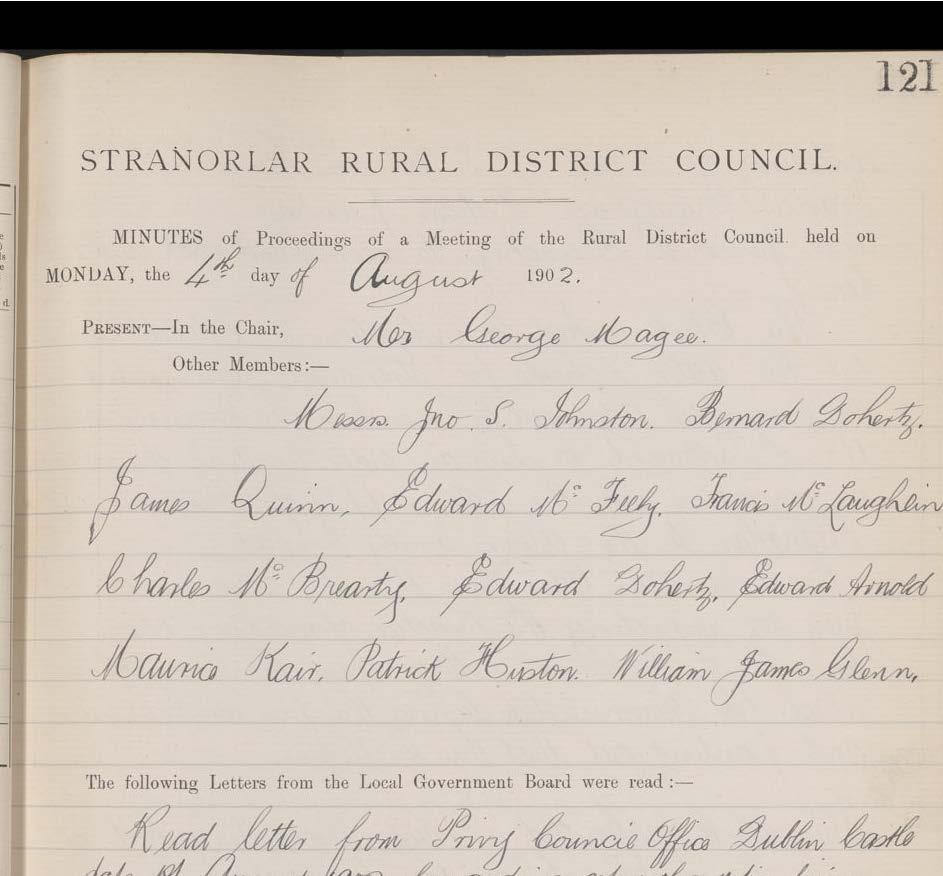 121
STRANORLAR RURAL DISTRICT COUNCIL.
MINUTES of Proceedings of a Meeting of the Rural District Council held on
MONDAY, the 4th day of August 1902.
PRESENT—In the Chair, Mr George Magee.
Other Members:—
Messrs. Jno. S. Johnston. Bernard Doherty.
James Quinn, Edward Mc Feely, Francis Mc Laughlin
Charles Mc Brearty, Edward Doherty, Edward Arnold
Maurice Kair, Patrick Huston. William James Glenn,
The following Letters from the Local Government Board were read:—
Read letter from Privy Council Office Dublin Castle